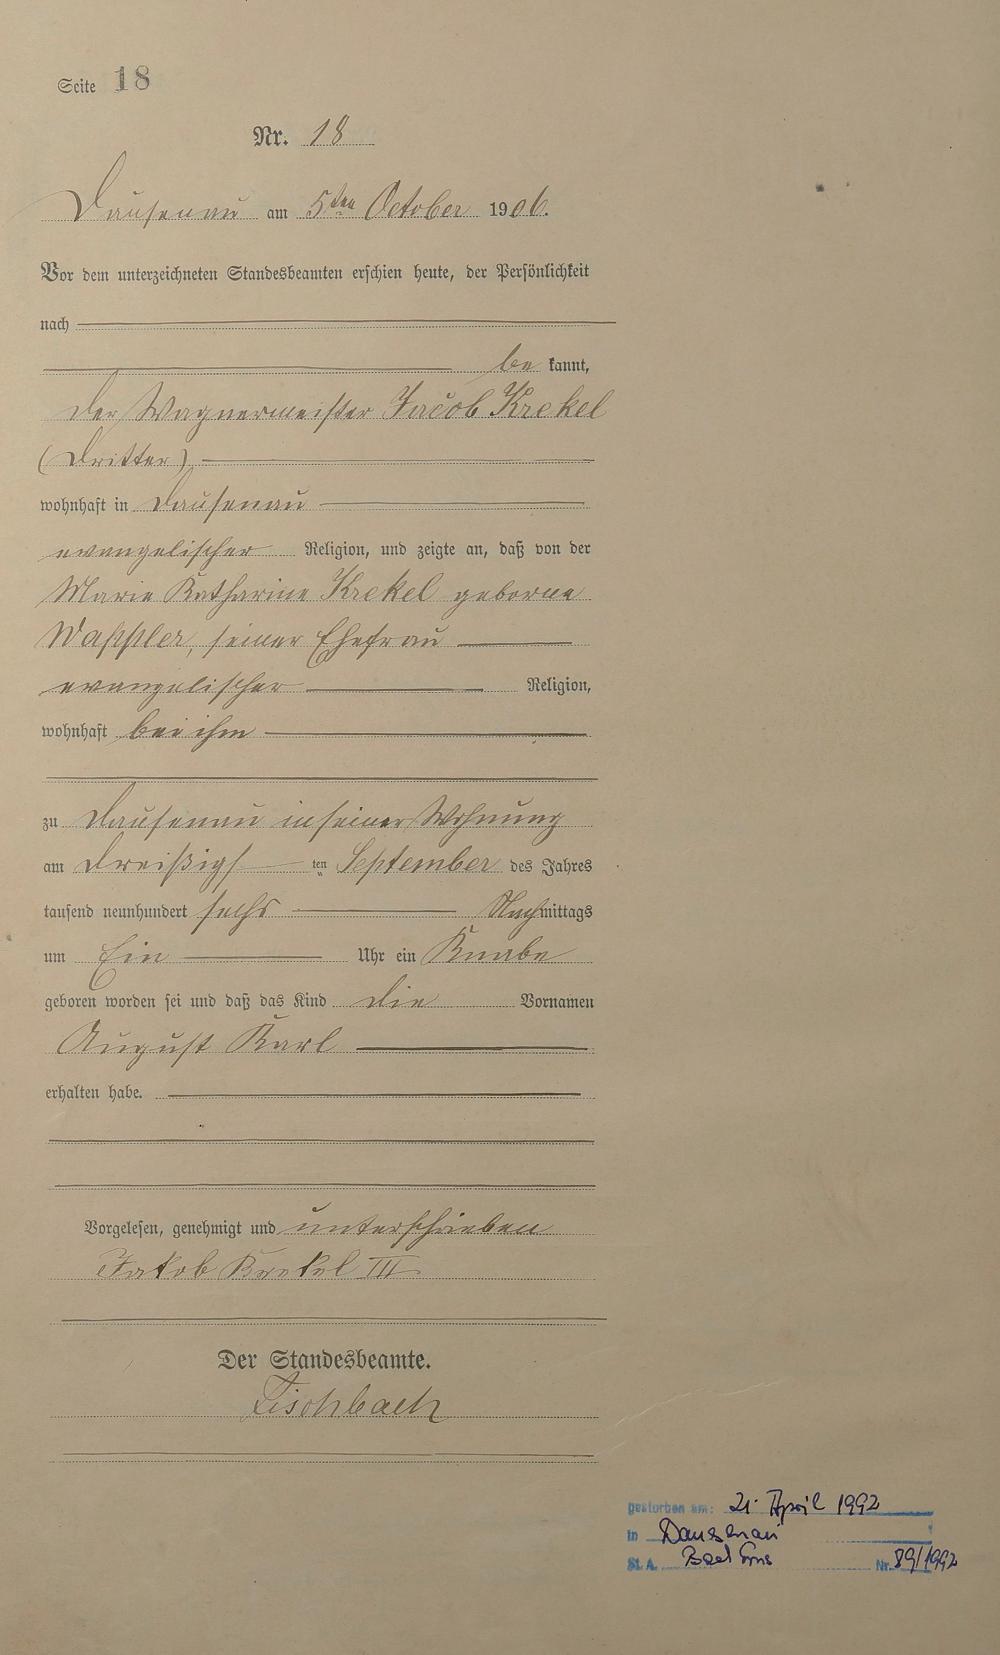 Seite 18
Nr. 18
Dausenau am 5ten October 1906.
Vor dem unterzeichneten Standesbeamten erschien heute, der Persönlichkeit
nach
be kannt,
der Wagnermeister Jacob Krekel
(Dritter)
wohnhaft in Dausenau
evangelischer Religion, und zeigte an, daß von der
Marie Katharine Krekel geborne
Wappler, seiner Ehefrau
evangelischer Religion,
wohnhaft bei ihm
zu Dausenau in seiner Wohnung
am dreißigs ten September des Jahres
tausend neunhundert sechs Nachmittags
um Ein Uhr ein Knabe
geboren worden sei und daß das Kind die Vornamen
August Karl
erhalten habe.
Vorgelesen, genehmigt und unterschrieben
Jakob Krekel III
Der Standesbeamte.
Fischbach
gestorben am: 21. April 1992
in Dausenau
St. A. Bad Ems Nr. 89/1992